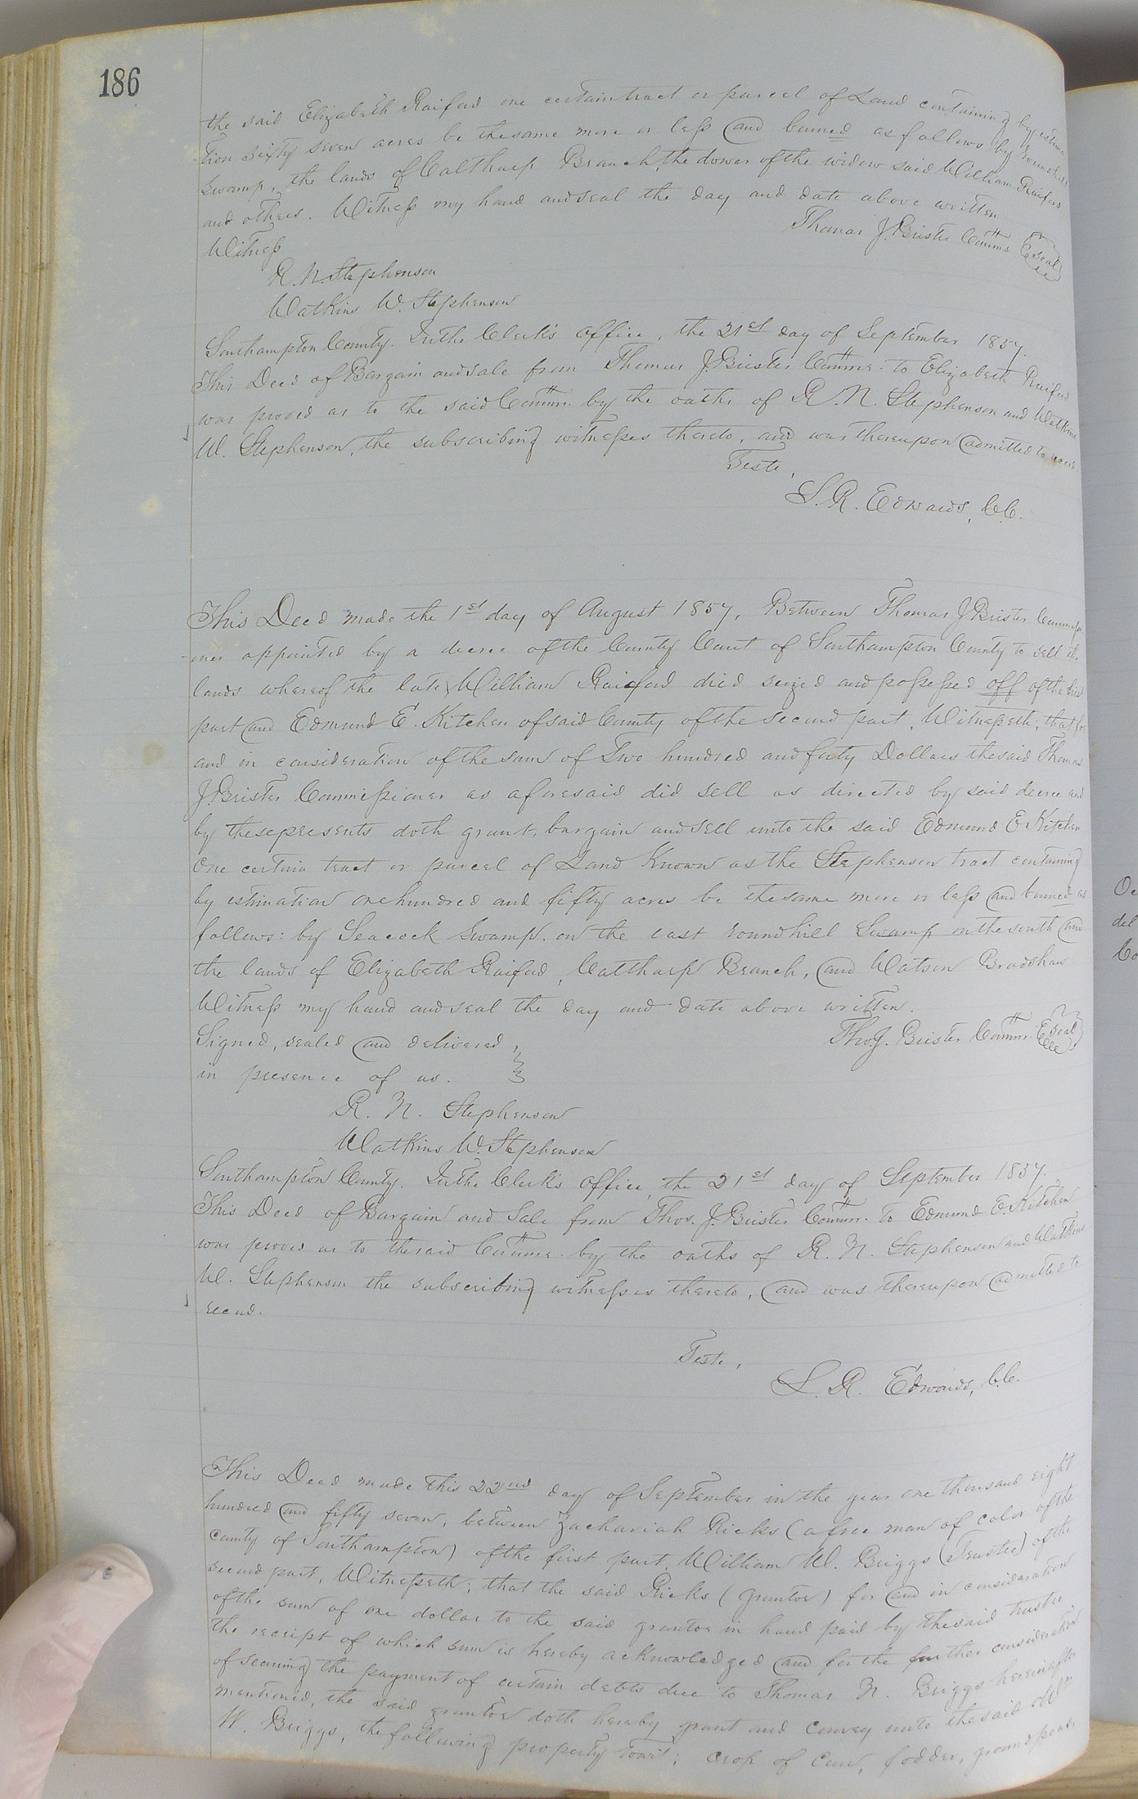 186
the said Elizabeth Raiford one certain tract or parcel of Land containing by estima
tion sixty seven acres be the same more or less and bounded as follows by Roundhill
Swamp, the lands of Caltharp Branch, the dower of the widow said William Raiford
and others. Witness my hand and seal the day and date above written
Thomas J. Brister Commr Seal
Witness
R. N. Stephenson
Watkins W. Stephenson
Southampton County. In the Clerk's Office, the 21st day of September 1857.
This Deed of Bargain and Sale from Thomas J. Brister Commr. to Elizabeth Raiford
was proved as to the said Commr. by the oaths of R. N. Stephenson and Watkins
W. Stephenson, the subscribing witnesses thereto, and was thereupon admitted to record
Teste,
L. R. Edwards, C.C.
This Deed made the 1st day of August 1857, Between Thomas J. Brister Commissio
ner appointed by a decree of the County Court of Southampton County to sell the
lands whereof the late William Raiford died seized and possessed off of the first
part and Edmund E. Kitchen of said County of the second part, Witnesseth; that for
and in consideration of the sum of Two hundred and forty Dollars the said Thomas
J. Brister Commissioner as aforesaid did sell as directed by said decree and
by these presents doth grant, bargain and sell unto the said Edmund E. Kitchen
One certain tract or parcel of Land Known as the Stephenson tract containing
by estimation one hundred and fifty acres be the same more or less and bound as
follows: by Seacock Swamp. on the east roundhill Swamp on the south and
the lands of Elizabeth Raiford, Caltharp Branch, and Watson Bradshaw
Witness my hand and seal the day and date above written.
Thos. J. Brister Commr. Seal
Signed, sealed and delivered
in presence of us.
R. N. Stephenson
Watkins W. Stephenson
Southampton County. In the Clerk's Office, the 21st day of September 1857.
This Deed of Bargain and Sale from Thos. J. Brister Commr. to Edmund E. Kitchen
was proved as to the said Commr. by the oaths of R. N. Stephenson and Watkins
W. Stephenson the subscribing witnesses thereto, and was thereupon admitted to
record.
Teste,
L. R. Edwards, C.C.
This Deed made this 22nd day of September in the year one thousand eight
hundred and fifty seven, between Zachariah Ricks (a free man of color of the
county of Southampton) of the first part, William W. Briggs (Trustee) of the
second part, Witnesseth; that the said Ricks (grantor) for and in consideration
of the sum of one dollar to the said grantor in hand paid by the said trustee
the receipt of which sum is hereby acknowledged and for the further consideration
of securing the payment of certain debts due to Thomas N. Briggs hereinafter
mentioned, the said grantor doth hereby grant and convey unto the said Wm
W. Briggs, the following property towit; crop of Corn, fodder, ground peas.